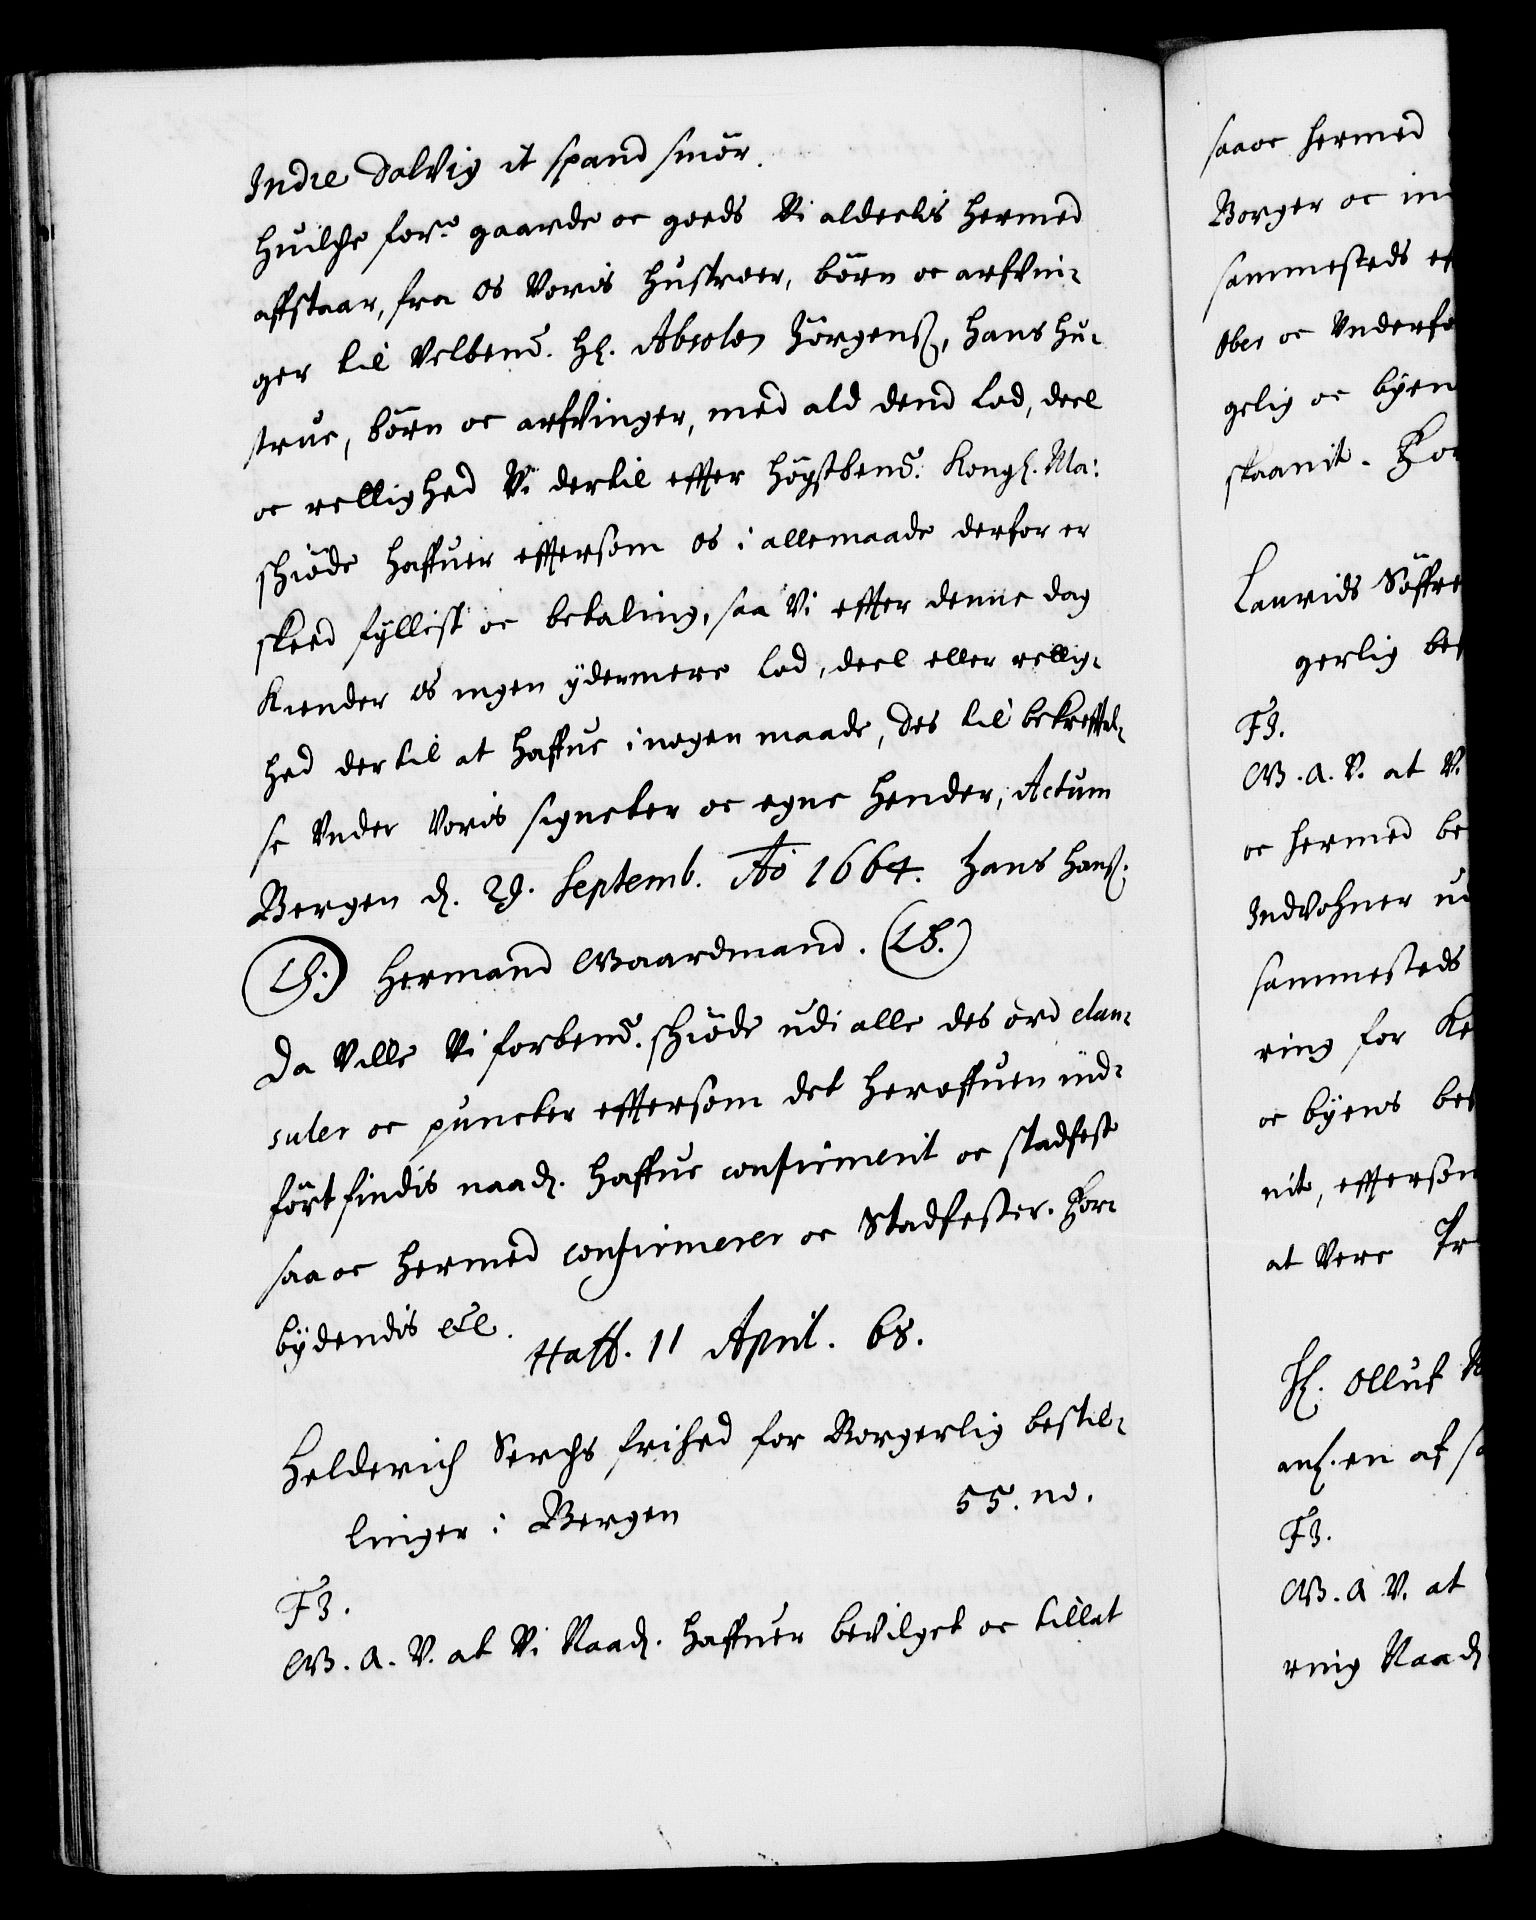 Indre Dalvig it spand smör.
Huilche for.ne gaarde oc goeds Vi aldeelis hermed
affstaar, fra os Voris hustruer, börn oc arfvin-
ger til Velbend. Hr. Absolon Jörgenß, hans hu-
strue, börn oc arfvinger, med ald dend lod, deel
oc rettighed Vi dertil effter högstbend. Kongl. Ma:
schiöde haffuer effterson os i allemaade derfor er
skeed fyllist oc betaling, saa Vi effter denne dag
Kiender os ingen ydermere lod, deel eller rettig-
hed dertil at haffue i nogen maade, Des til bekrefftel-
se Vnder Voris signeter oc egne hender, Actum
Bergen d. 29. Septemb. Ao 1664. Hans Hanß.
(LS.) Herman​d Waardmand. (LS.)
Da Ville Vi forbend. schiöde udi alle des ord clau-
suler oc puncter effterson det heroffuen ind-
fört findis naad. haffue confirmerit oc stadfest
saa oc hermed confirmerer oc Stadfester. For-
bydendis etc.
Haff. 11 April. 68.
Helderich Serchs frihed for Borgerlig bestil-
linger i Bergen 55. no.
F3.
W. A. V. at Vi Naad. haffuer bevilget oc tillat
saa oc hermed
Borger oc in
sammesteds ef
Ober oc Vnderfo
gelig oc byen
skaanit. For
Laurids Söffre
gerlig bes
F3.
W. A. V. at V.
oc hermed be
Indvohner ud
sammesteds
ring for Ke
oc byens bes
nit, effterson
at Vere Tr
Hr. Olluf
anl. en af s
F3.
W. A. V. at
ring Naad